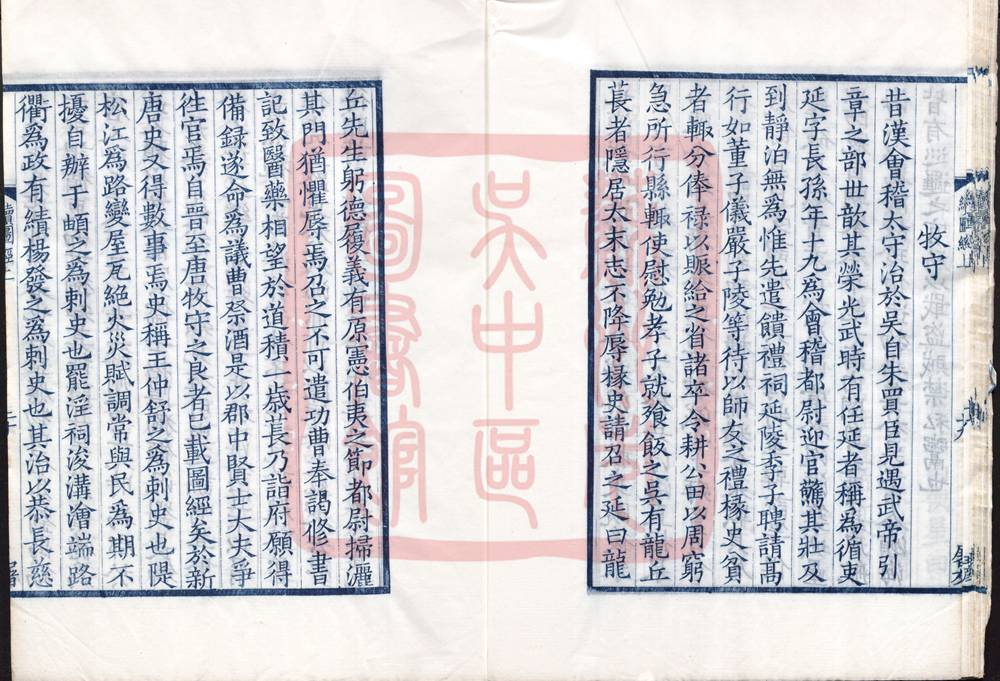 牧守
昔漢會稽太守治於吳自朱買臣見遇武帝引
章之部世歆其榮光武時有任延者稱為循吏
延字長孫年十九為會稽都尉迎官驚其壯及
到靜泊無為惟先遣饋禮祠延陵季子聘請高
行如董子儀嚴子陵等待以師友之禮椽史貧
者輙分俸禄以賑給之省諸卒令耕公田以周窮
急所行縣輙使慰勉孝子就飱飯之吳有龍丘
萇者隱居太末志不降辱椽史請召之延曰龍
丘先生躬德履義有原憲伯夷之節都尉掃灑
其門猶懼辱焉召之不可遣功曹奉謁修書
記致醫藥相望於道積一歲萇乃詣府願得
備録遂命為議曹祭酒是以郡中賢士大夫爭
徃官焉自晉至唐牧守之良者已載圖經矣於新
唐史又得數事焉史稱王仲舒之為刺史也隄
松江為路變屋瓦絕火災賦調常與民為期不
擾自辦于頔之為刺史也罷淫祠浚溝澮端路
衢為政有績楊發之為刺史也其治以恭長慈
蘇州圖書館
吳中區